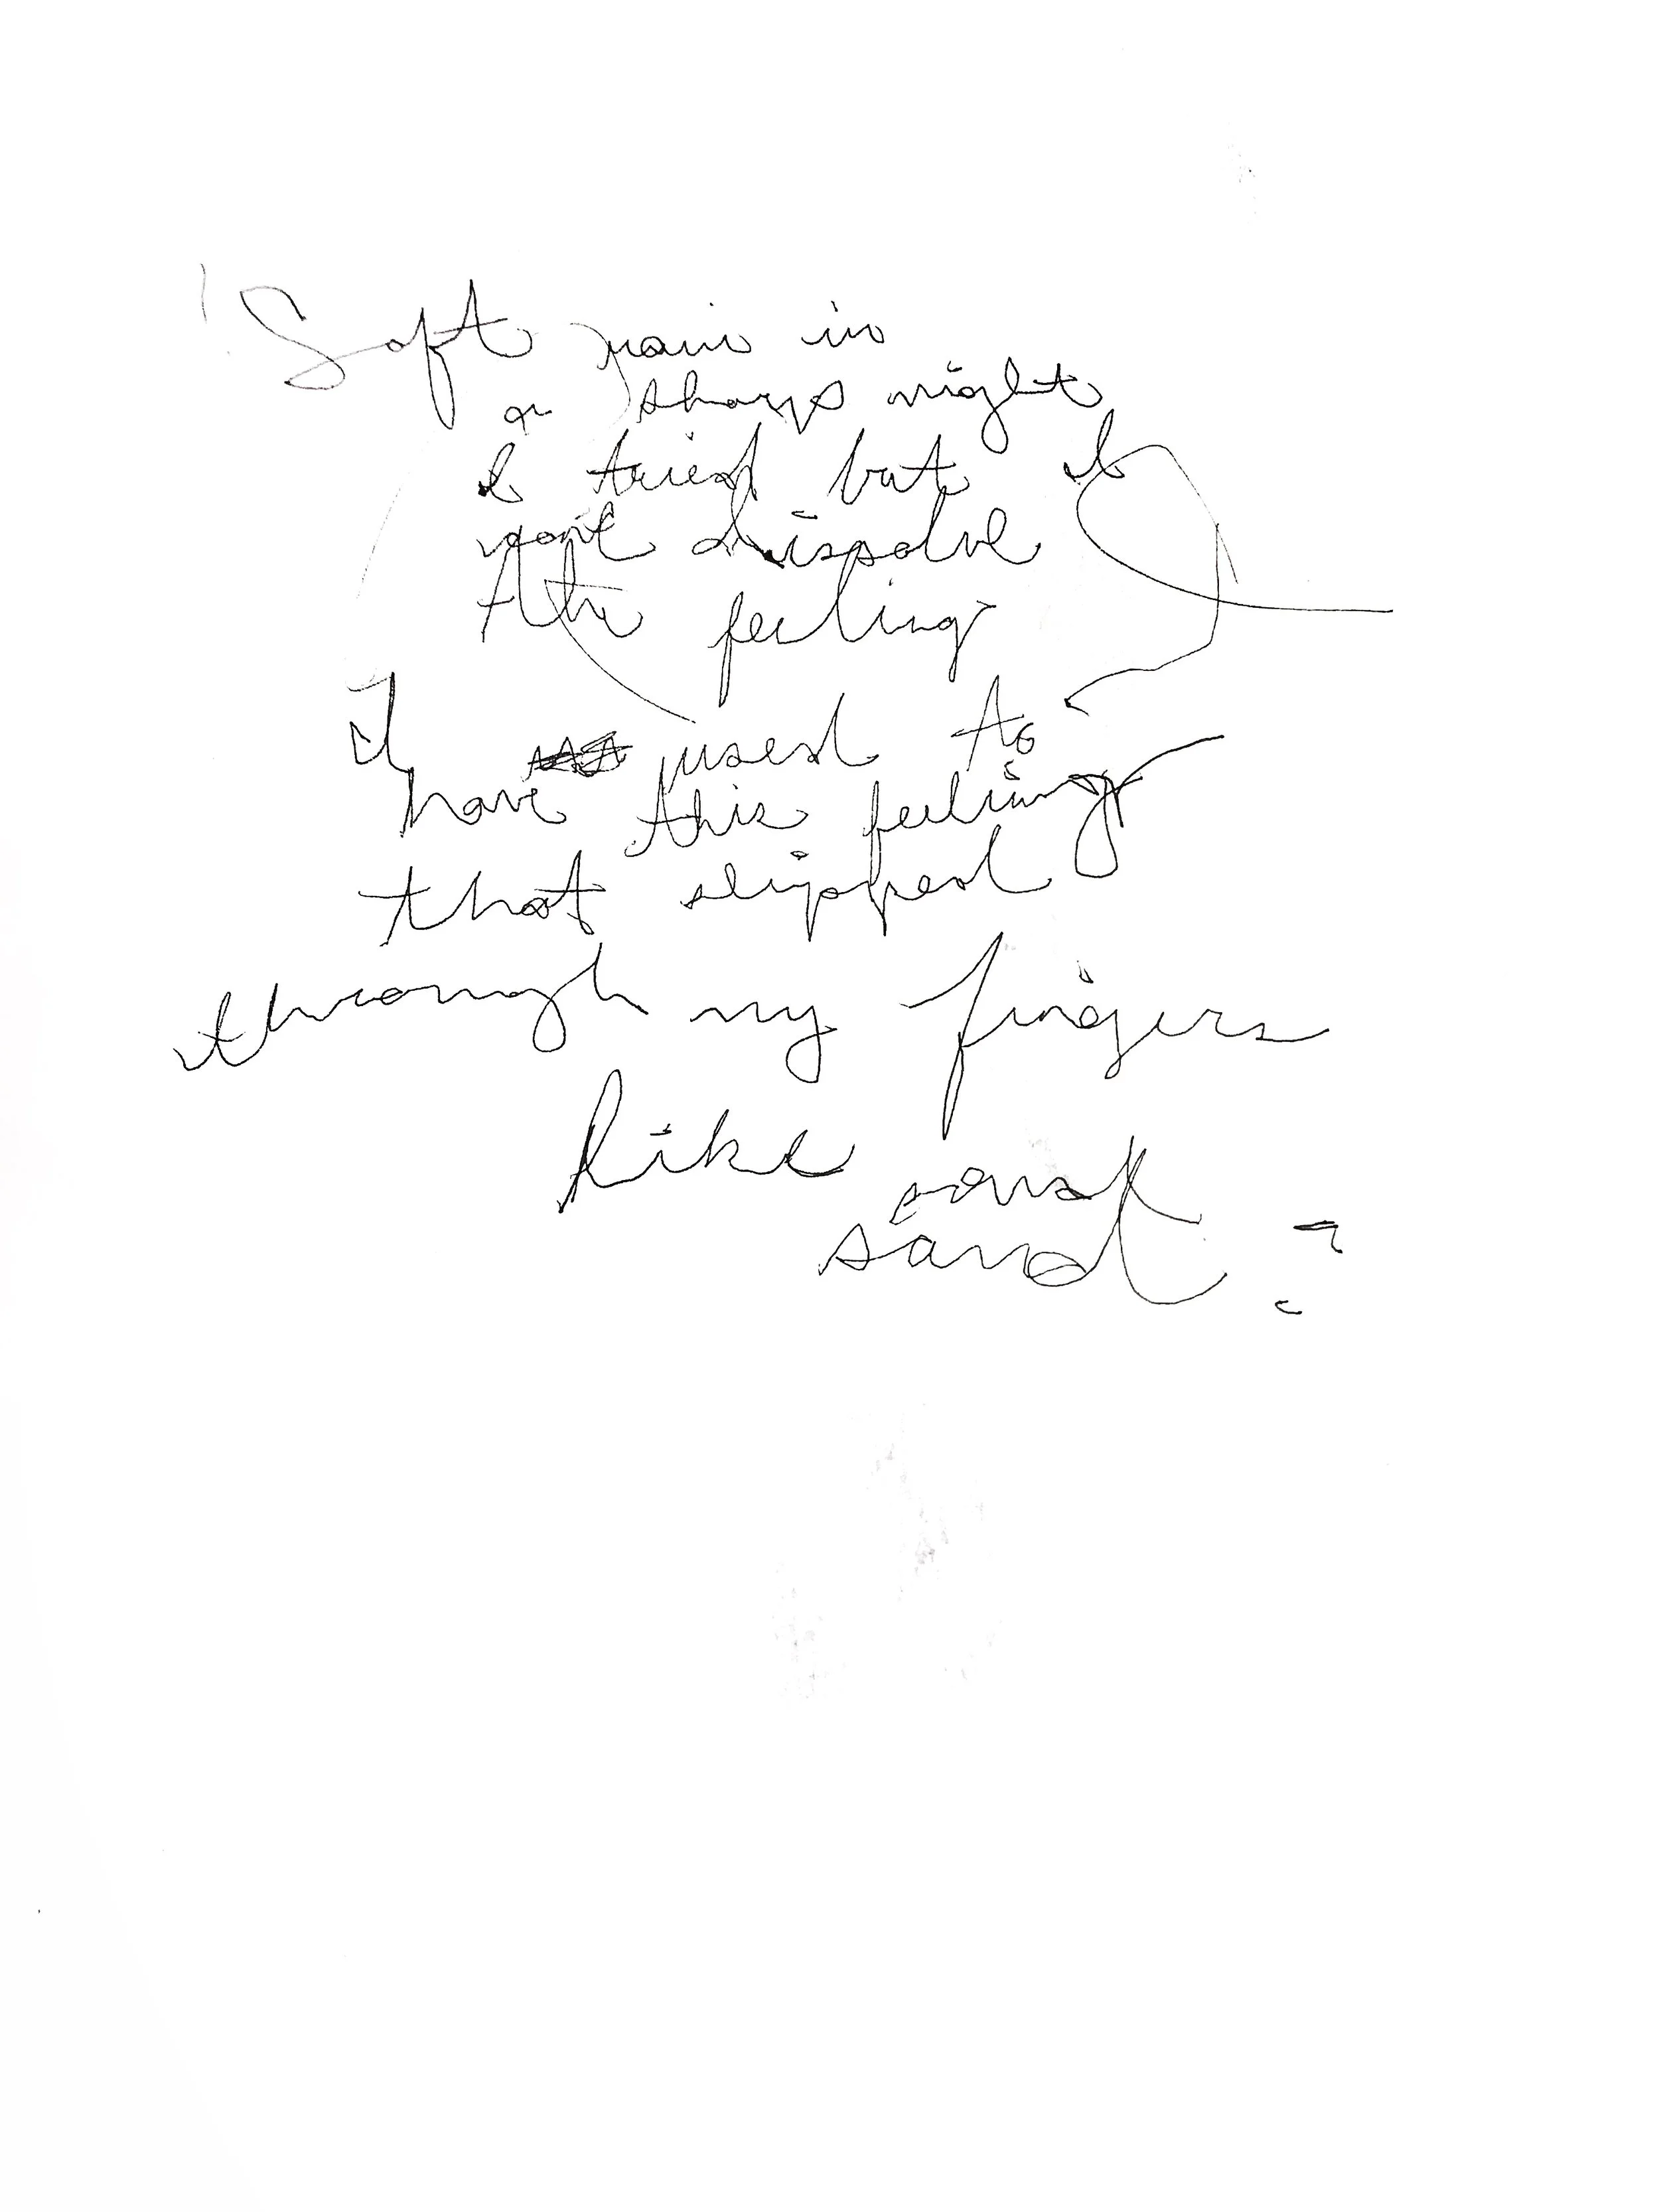 Soft rain in
a sharp night
I tried but I
won't dissolve
the feeling
I used to
have this feeling
that slipped
through my fingers
like sand
sand ?